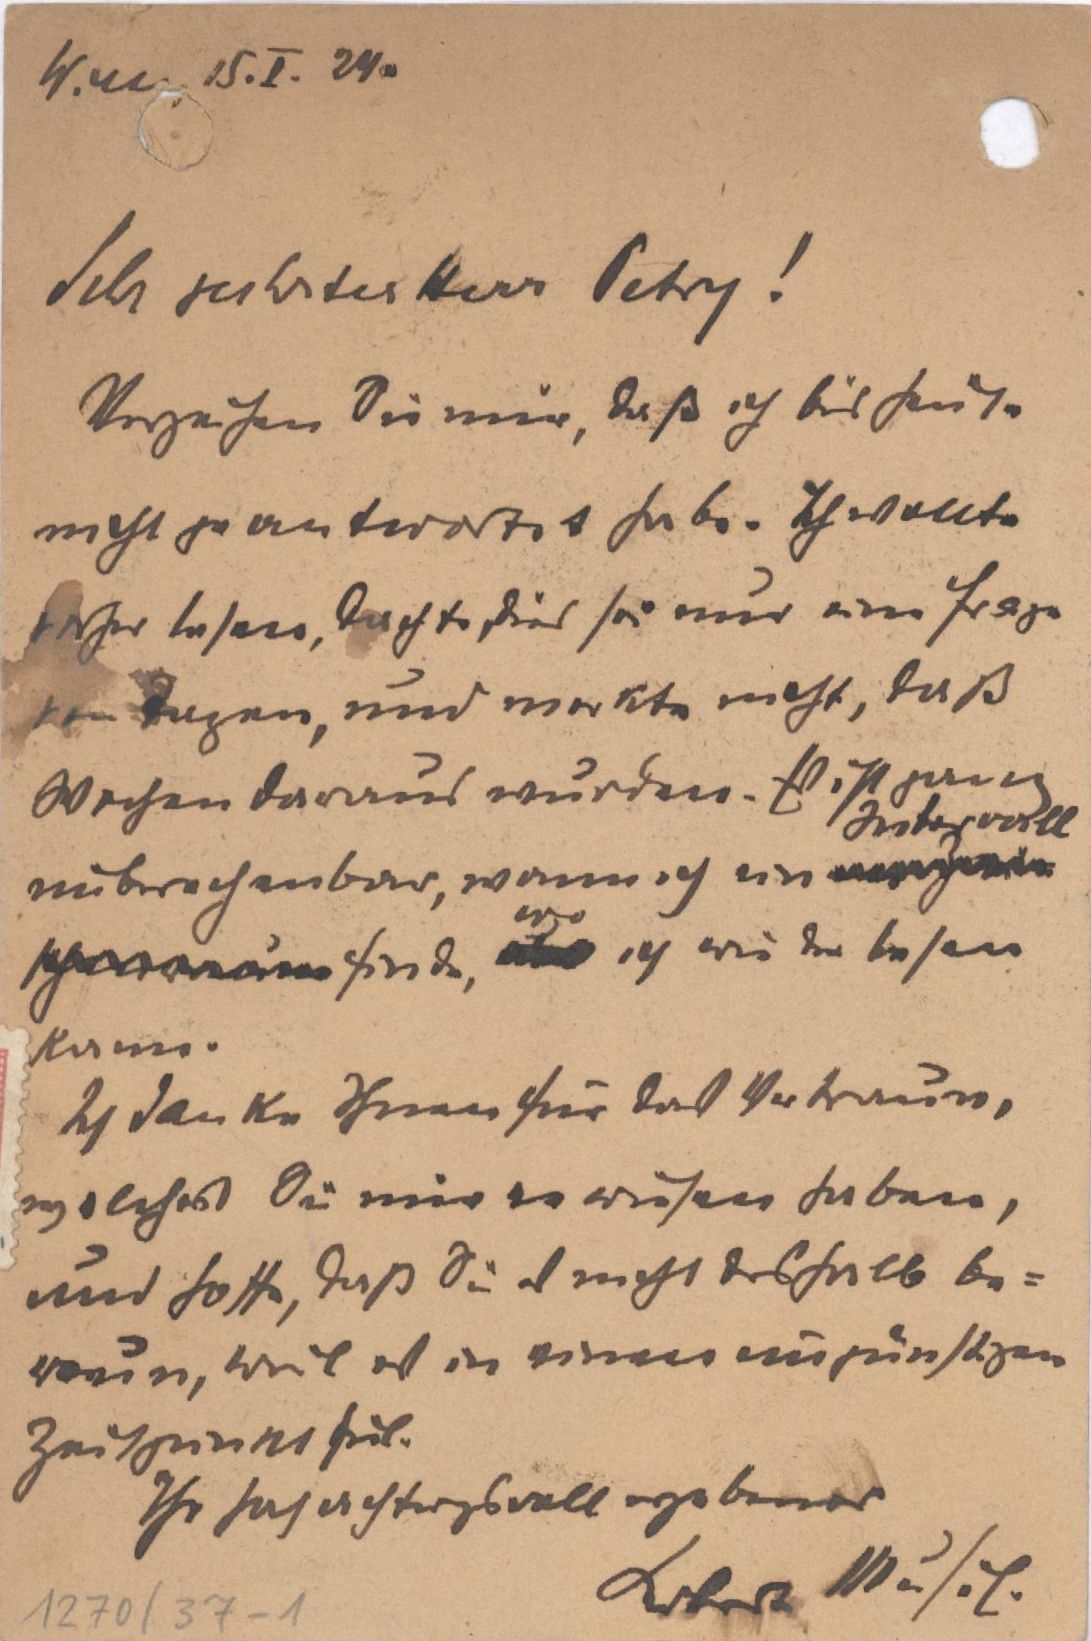 Wien, 15.I. 24.
Sehr geehrter Herr Petry!
Verzeihen Sie mir, daß ich bis heute
nicht geantwortet habe. Ich wollte
vorher lesen, dachte, dies sei nur eine Frage
von Tagen, und merkte nicht, daß
Wochen daraus wurden. Es ist ganz
Intervall
unberechenbar, wann ich ein
finde, wo ich wieder lesen
kann.
Ich danke Ihnen für das Vertrauen,
welches Sie mir erwiesen haben,
und hoffe, daß Sie es nicht deshalb be=
reuen, weil es in einen ungünstigen
Zeitpunkt fiel.
Ihr hochachtungsvoll ergebener
Robert Musil.
1270/37-1